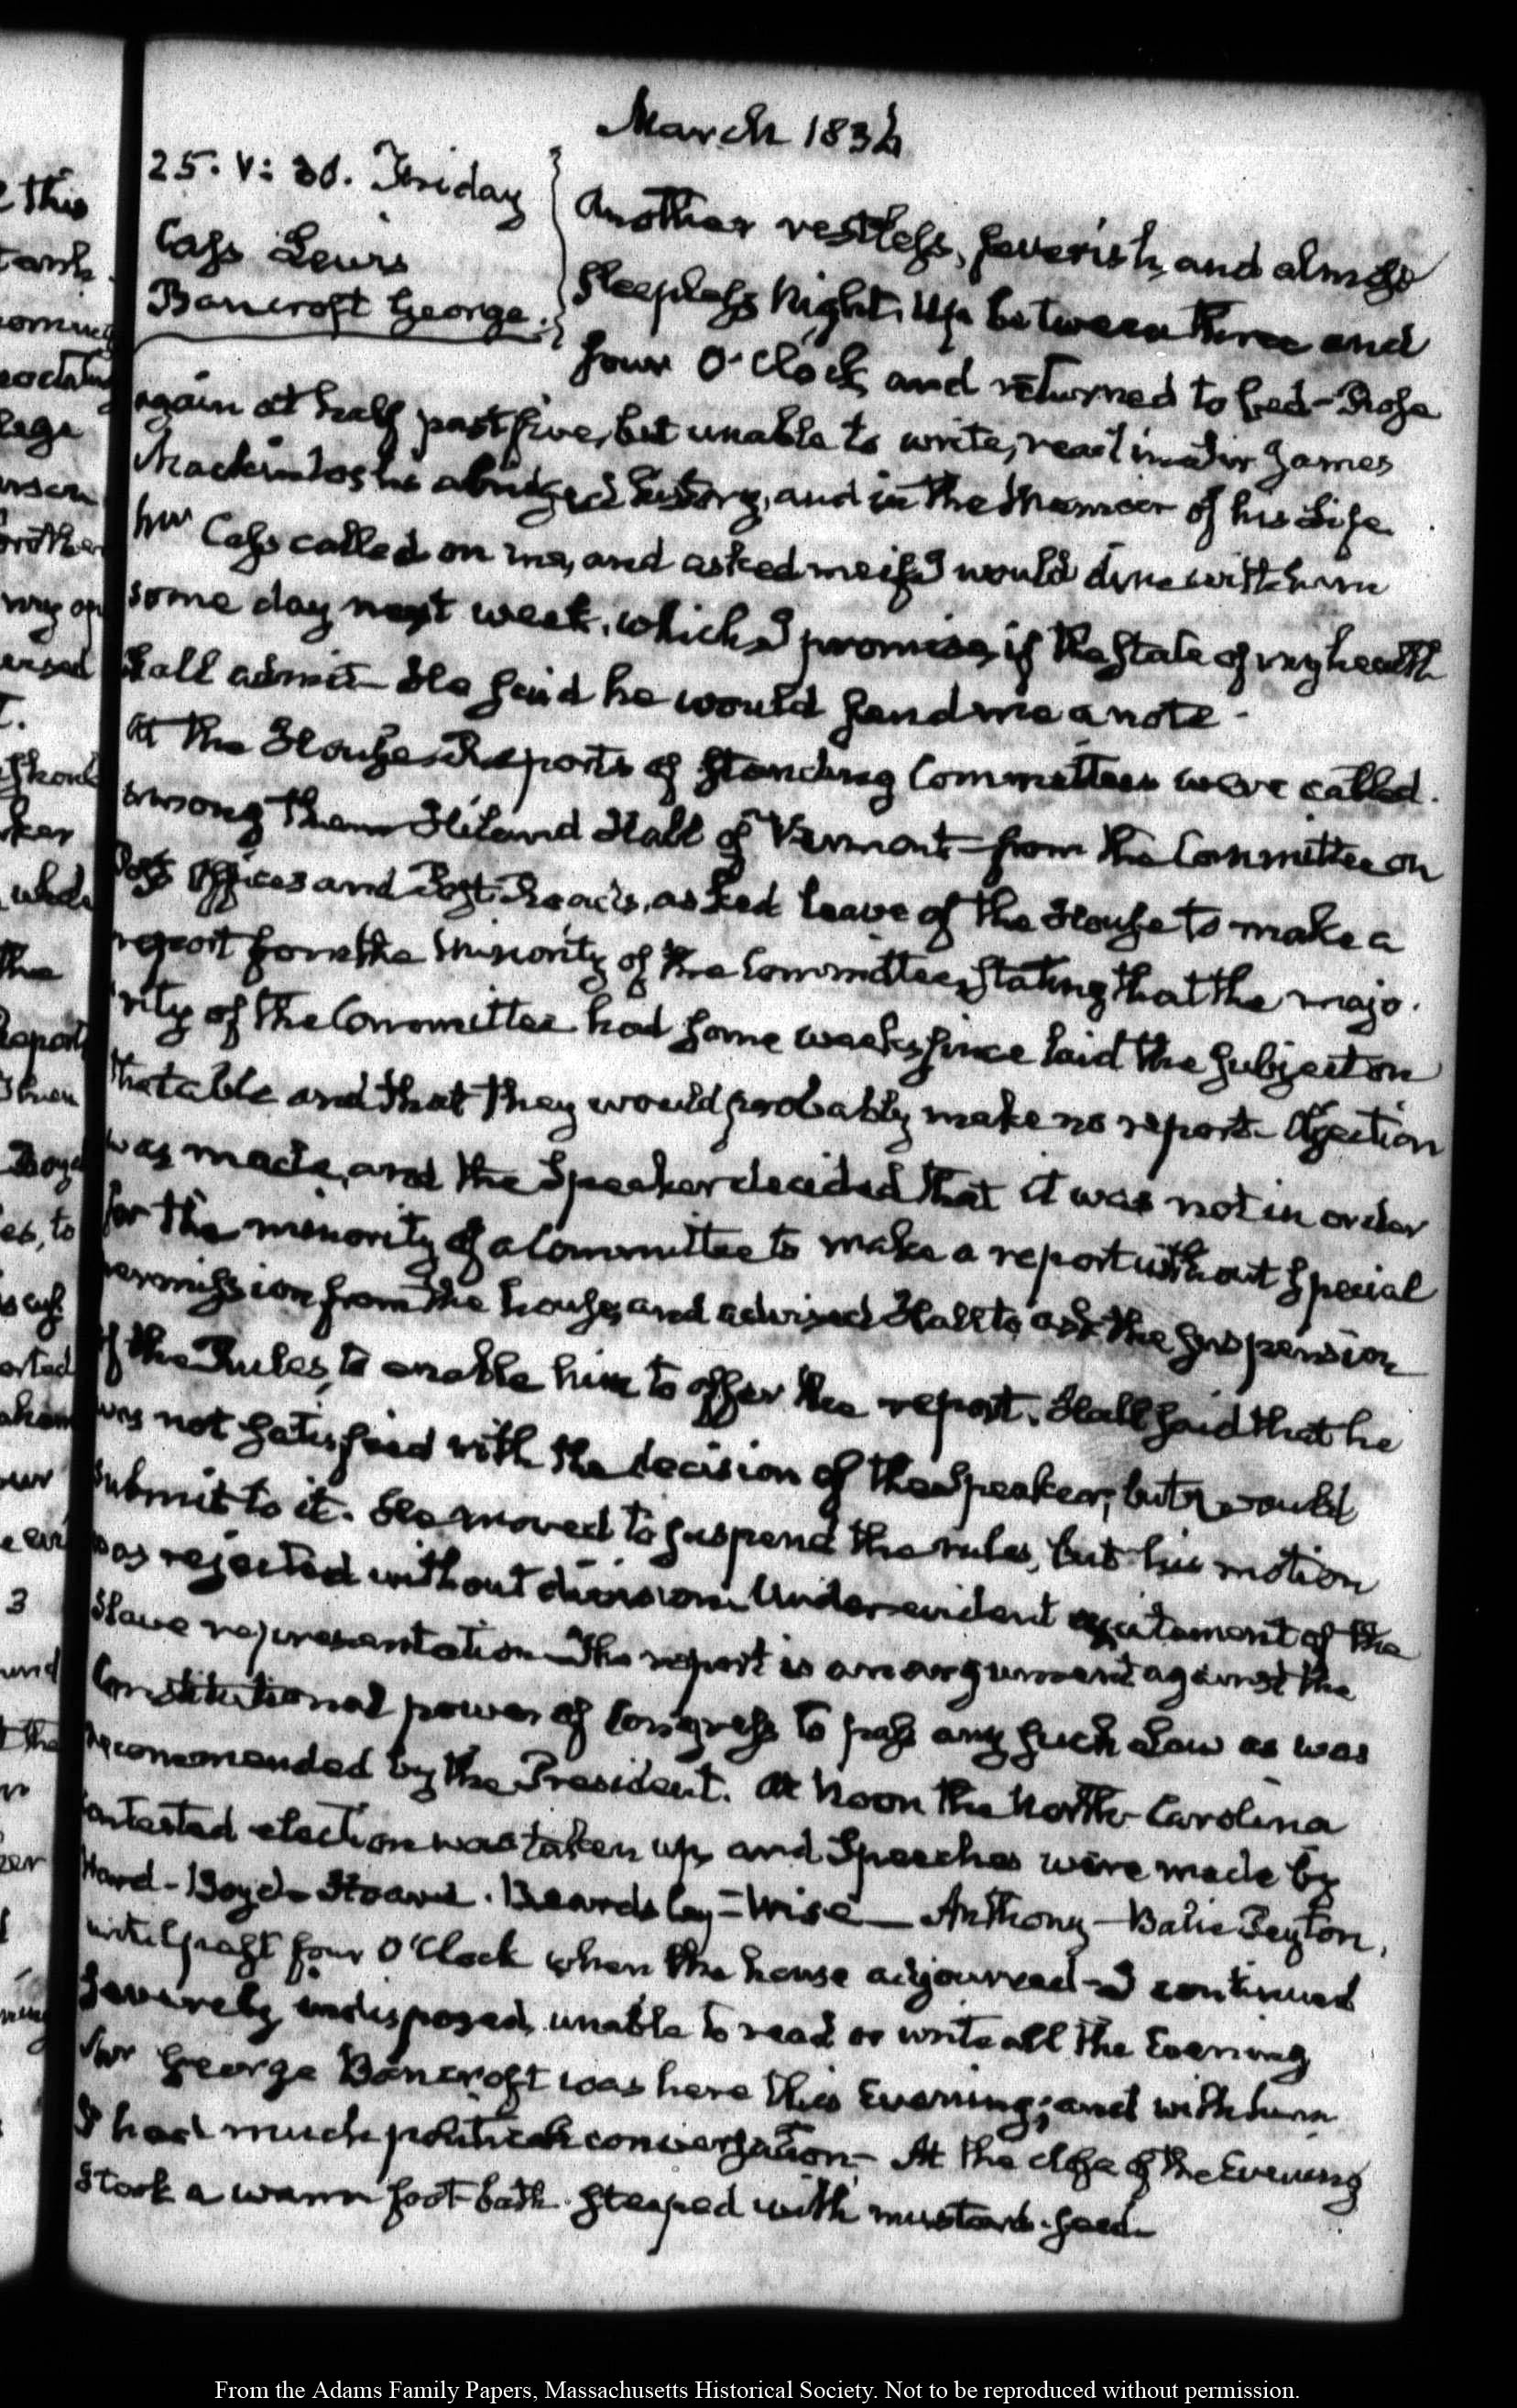 March 1836
25. V: 30. Friday
Cass Lewis
Bancroft George.
Another restless, feverish, and almost
sleepless Night. Up between three and
four O'Clock, and returned to bed – Rose
again at half past five, but unable to write, read in Sir James
Mackintosh's abridged history, and in the Memoir of his Life.
Mr Cass called on me, and asked me if I would dine with him
some day next week, which I promise, if the State of my health
shall admit – He said he would send me a note.
At the House, Reports of standing Committees were called.
among them Hiland Hall of Vermont – from the Committee on
Post Offices and Post-Roads, asked leave of the House to make a
report from the Minority of the Committee, stating that the majo-
rity of the Committee had some weeks since laid the subject on
the table and that they would probably make no report – Objection
was made, and the Speaker decided that it was not in order
for the minority of a Committee to make a report without special
permission from the house, and advised Hall to ask the suspension
of the Rules, to enable him to offer the report. Hall said that he
was not satisfied with the decision of the Speaker, but would
submit to it. He moved to suspend the rules, but his motion
was rejected without division. Under evident excitement of the
slave representation – The report is an argument against the
Constitutional power of Congress to pass any such Law as was
recommended by the President. At Noon the North-Carolina
contested election was taken up, and Speeches were made by
Hard – Boyd – Hoar. Beardsley – Wise – Anthony – Balie Peyton,
until past four O'Clock when the house adjourned – I continued
severely indisposed, unable to read or write all the Evening
Mr George Bancroft was here this Evening; and with him
I had much political conversation – At the close of the Evening
I took a warm foot-bath steeped with mustard-seed
From the Adams Family Papers, Massachusetts Historical Society. Not to be reproduced without permission.